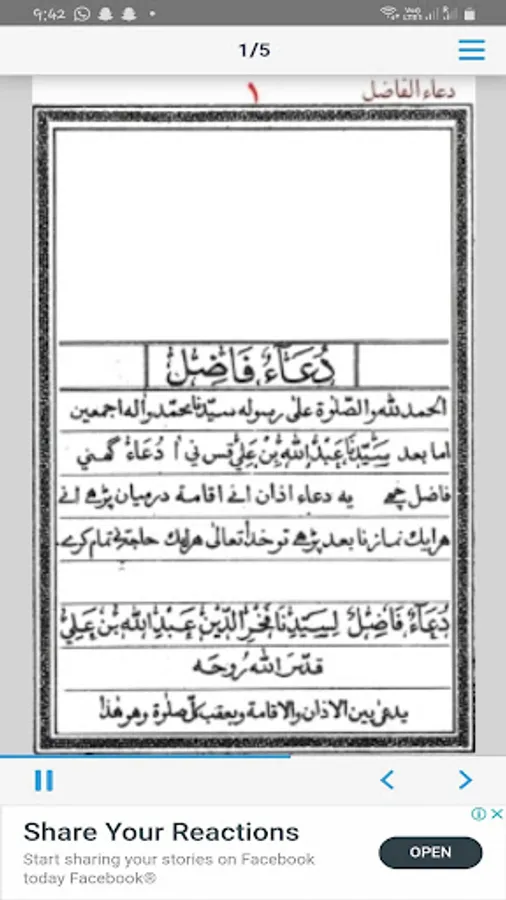 9:42
1/5
دعاء الفاضل
١
دُعَآءُ فَاضِلْ
الحمد لله والصّلوة على رسوله سيّدنا محمّد واٰله اجمعين
اما بعد سَيِّدنَا عَبْدُ اللهِ بْن عَلِيّ قس ني اٰ دُعَاءْ گهني
فاضل چھے يه دعاء اذان انے اقامة درميان پڑھے انے
هر ايك نماز نا بعد پڑھے تو خداتعالى هرايك حاجة تمام كرے
دُعَآءُ فَاضِلْ لِسَيِّدِنَا فَخْرِ الدِّيْنِ عَبْدِ اللهِ بْنِ عَلِيّ
قدّس الله رُوحَه
يدعى بين الاذان والاقامة وبعقب كلّ صلوة وهو هٰذا
Share Your Reactions
Start sharing your stories on Facebook
today Facebook®
OPEN